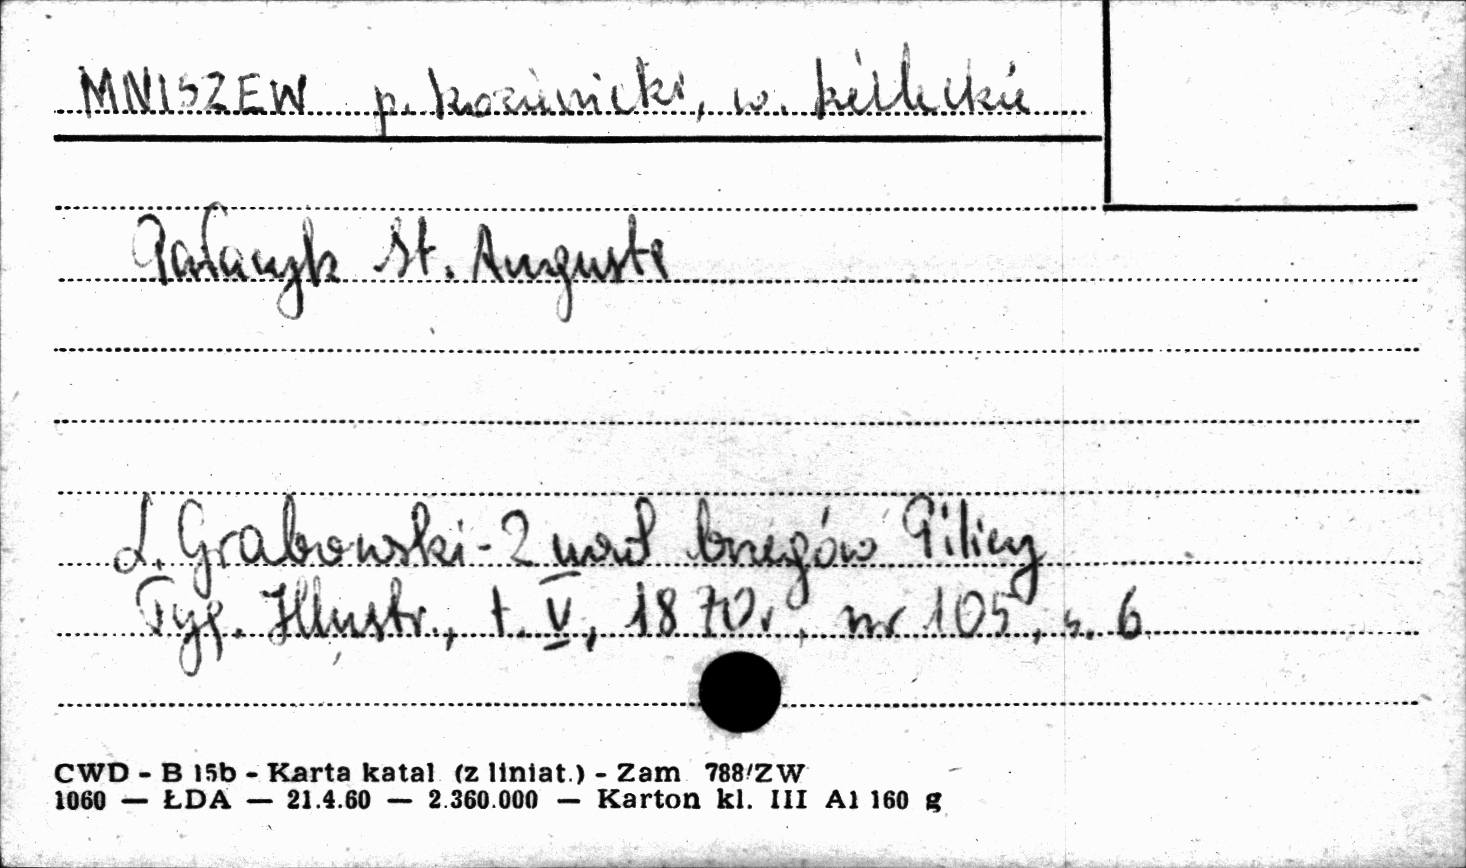 MNISZEW p. kozienicki, w. kieleckie
Pałacyk St. Augusta
L. Grabowski - Z nad brzegów Pilicy
Tyg. Illustr., t. V, 1870 r, nr 105, s. 6
CWD - B 15b - Karta katal (z liniat.) - Zam 788/ZW
1060 — ŁDA — 21.4.60 — 2.360.000 — Karton kl. III A1 160 g